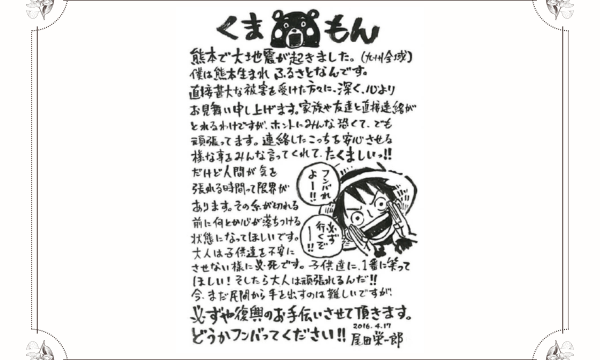 くまモン
熊本で大地震が起きました。(九州全域)
僕は熊本生まれ ふるさとなんです。
直接甚大な被害を受けた方々に、深く、心より
お見舞い申し上げます。家族や友達と直接連絡が
とれるわけですが、ホントにみんな恐くて、でも
頑張ってます。連絡したこっちを安心させる
様な事をみんな言ってくれて、たくましいっ!!
だけど人間が気を
張れる時間って限界が
あります。その糸が切れる
前に何とか心が落ちつける
状態になってほしいです。
大人は子供達を不安に
させない様に必死です。子供達に、1番に笑って
ほしい!そしたら大人は頑張れるんだ!!
今、まだ民間から手を出すのは難しいですが、
必ずや復興のお手伝いさせて頂きます。
どうかフンバってください!!
2016.4.17
尾田栄一郎
フンバれ
よー!!
必ず
行くぞ
ー!!